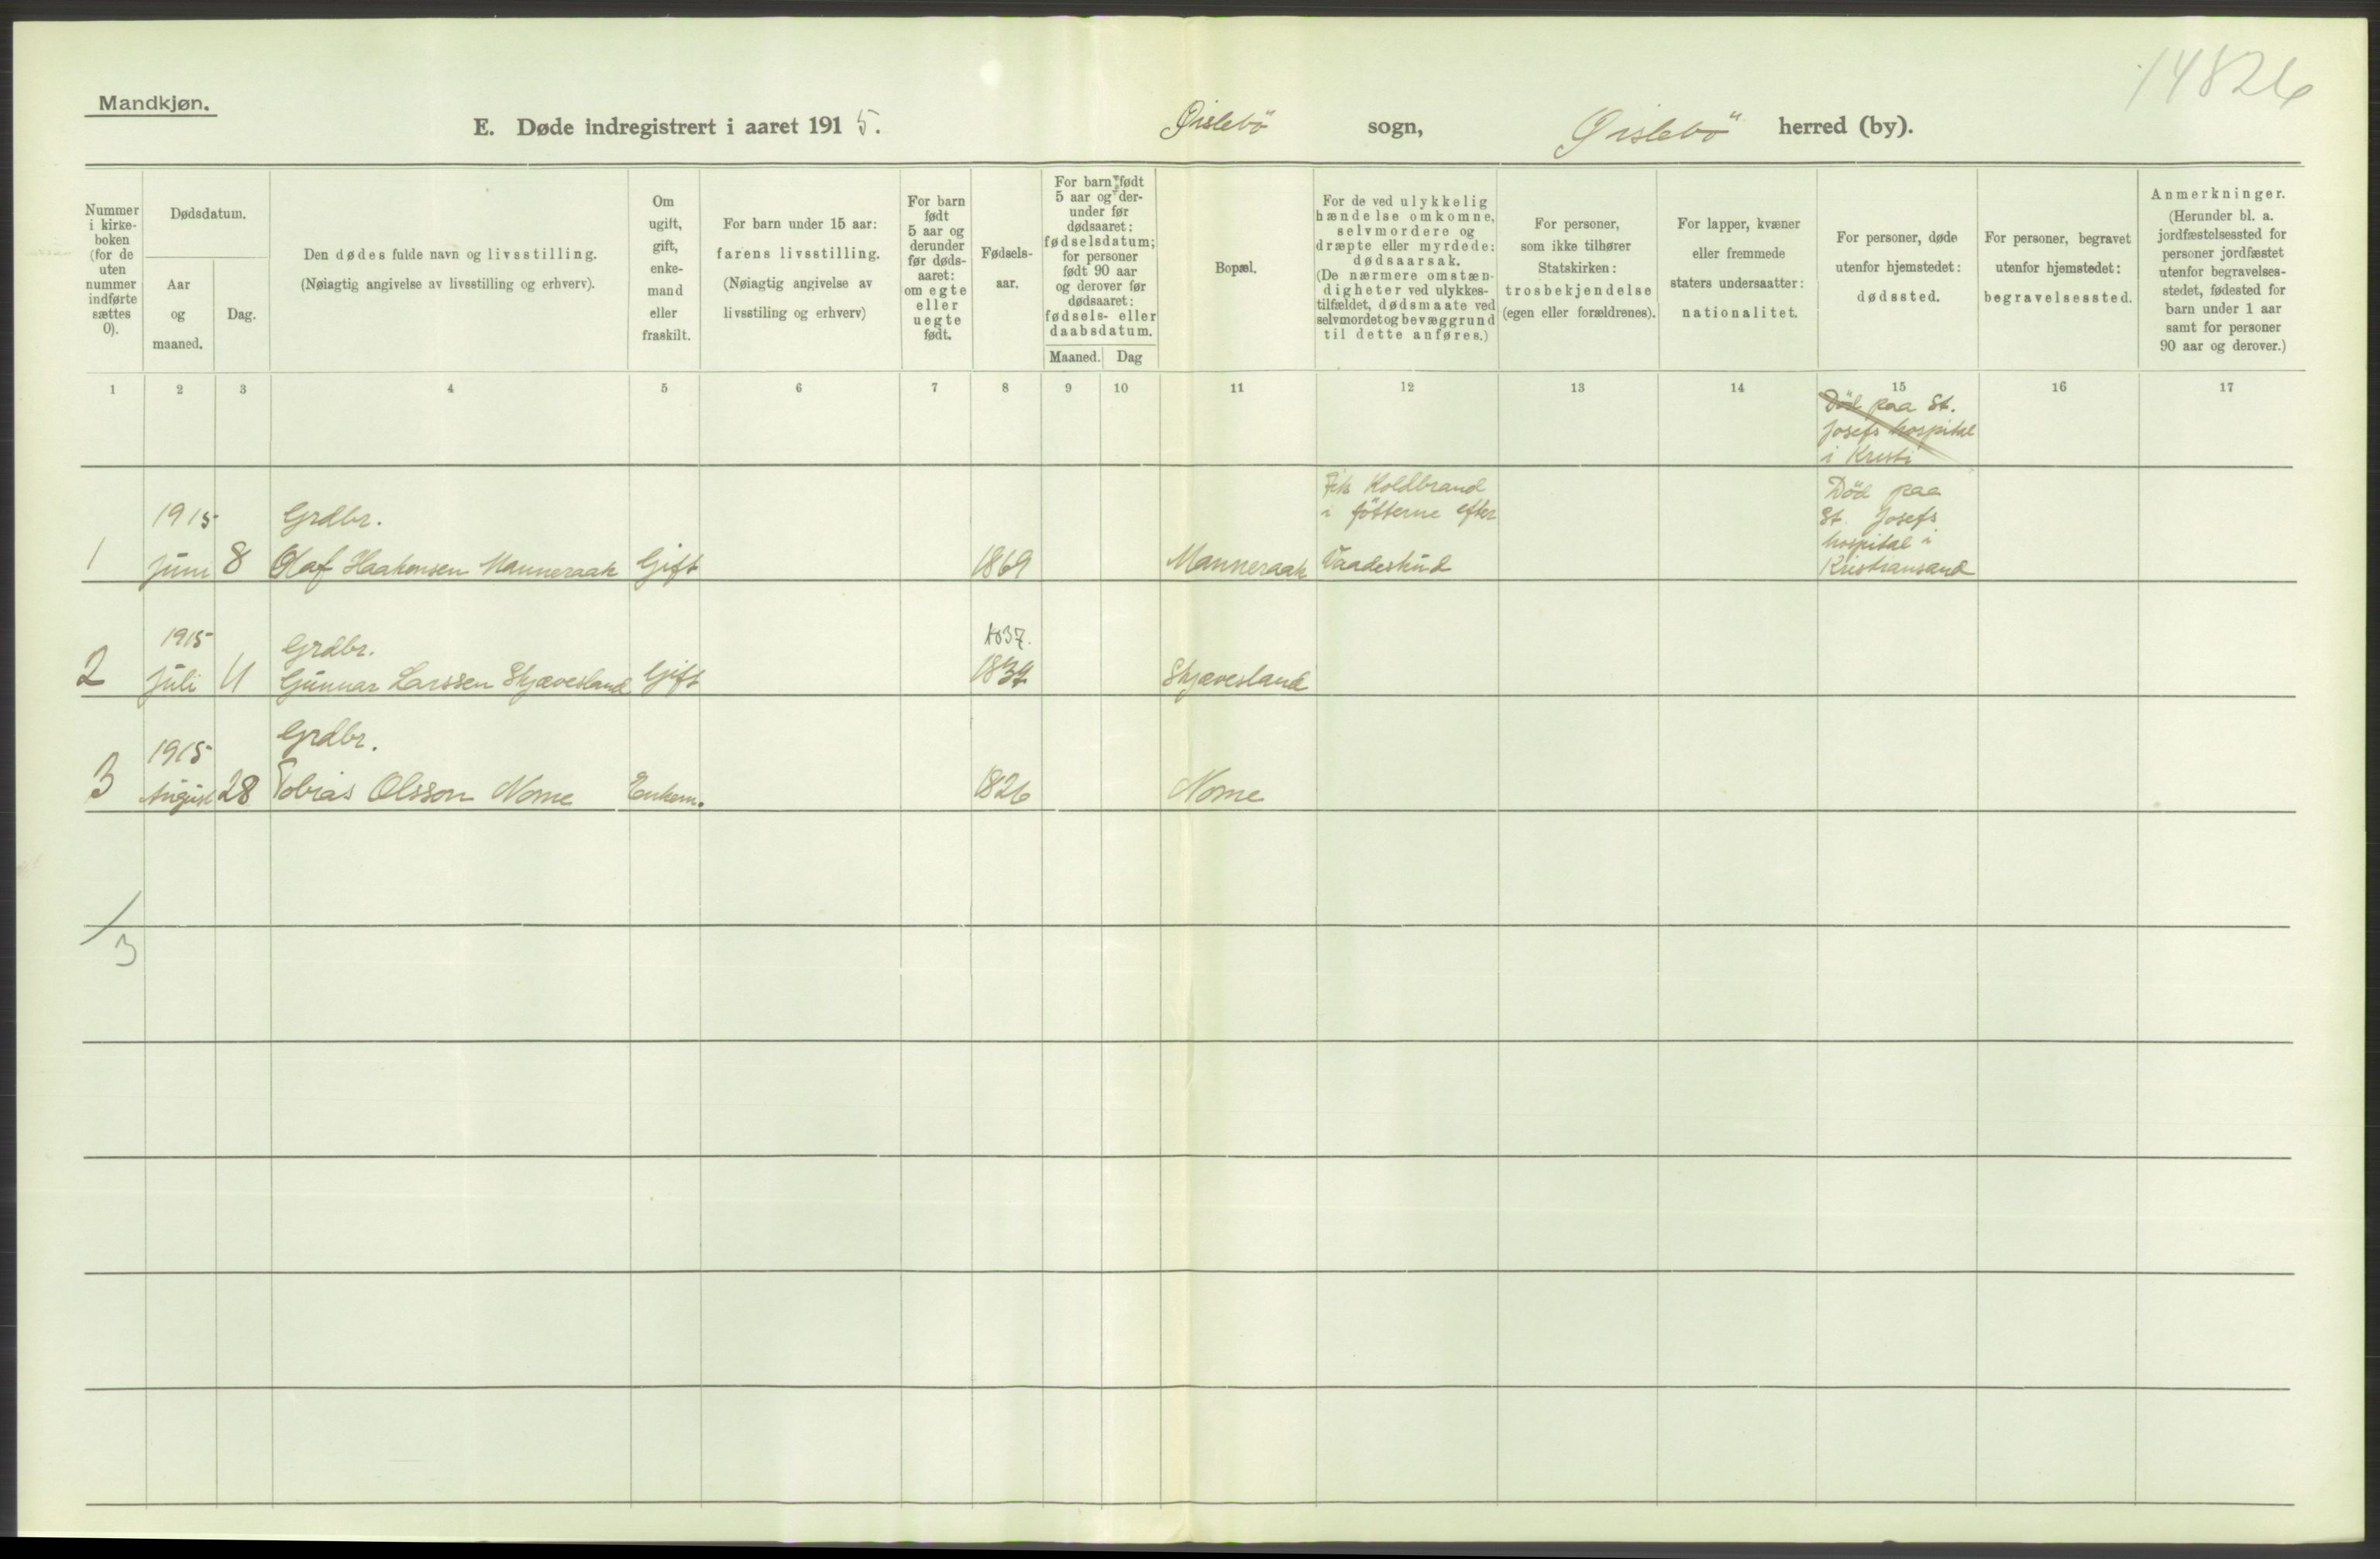 14826
Mandkjøn.
E. Døde indregistrert i aaret 1915. Øislebö sogn, Øislebö herred (by).
Nummer i kirke- boken (for de uten nummer indførte sættes 0).
Dødsdatum.
Aar og maaned.
Dag.
Den dødes fulde navn og livsstilling.
(Nøiagtig angivelse av livsstilling og erhverv).
Om ugift, gift, enke- mand eller fraskilt.
For barn under 15 aar:
farens livsstilling.
(Nøiagtig angivelse av
livsstiling og erhverv)
For barn født 5 aar og derunder før døds- aaret: om egte eller uegte født.
Fødsels- aar.
For barn født 5 aar og der- under før dødsaaret: fødselsdatum; for personer født 90 aar og derover før dødsaaret: fødsels- eller daabsdatum.
Maaned. Dag
Bopæl.
For de ved ulykkelig hændelse omkomne, selvmordere og dræpte eller myrdede: dødsaarsak. (De nærmere omstæn- digheter ved ulykkes- tilfældet, dødsmaate ved selvmordet og bevæggrund til dette anføres.)
For personer, som ikke tilhører Statskirken: trosbekjendelse (egen eller forældrenes).
For lapper, kvæner eller fremmede staters undersaatter: nationalitet.
For personer, døde utenfor hjemstedet: dødssted.
For personer, begravet utenfor hjemstedet: begravelsessted.
Anmerkninger. (Herunder bl. a. jordfæstelsessted for personer jordfæstet utenfor begravelses- stedet, fødested for barn under 1 aar samt for personer 90 aar og derover.)
1 2 3 4 5 6 7 8 9 10 11 12 13 14 15 16 17
Död paa St.
Josefs hospital
i Kristi
Fik Koldbrand Död paa
1915 Grdbr. i fötterne efter St. Josefs
hospital i
1 Juni 8 Olaf Haakensen Manneraak Gift 1869 Manneraak Vaadeskud Kristiansand
1915 Grdbr. 1837.
2 Juli 11 Gunnar Larssen Skjævesland Gift 1834 Skjævesland
1915 Grdbr.
3 August 28 Tobias Olsson Nome Enkem. 1826 Nome
3